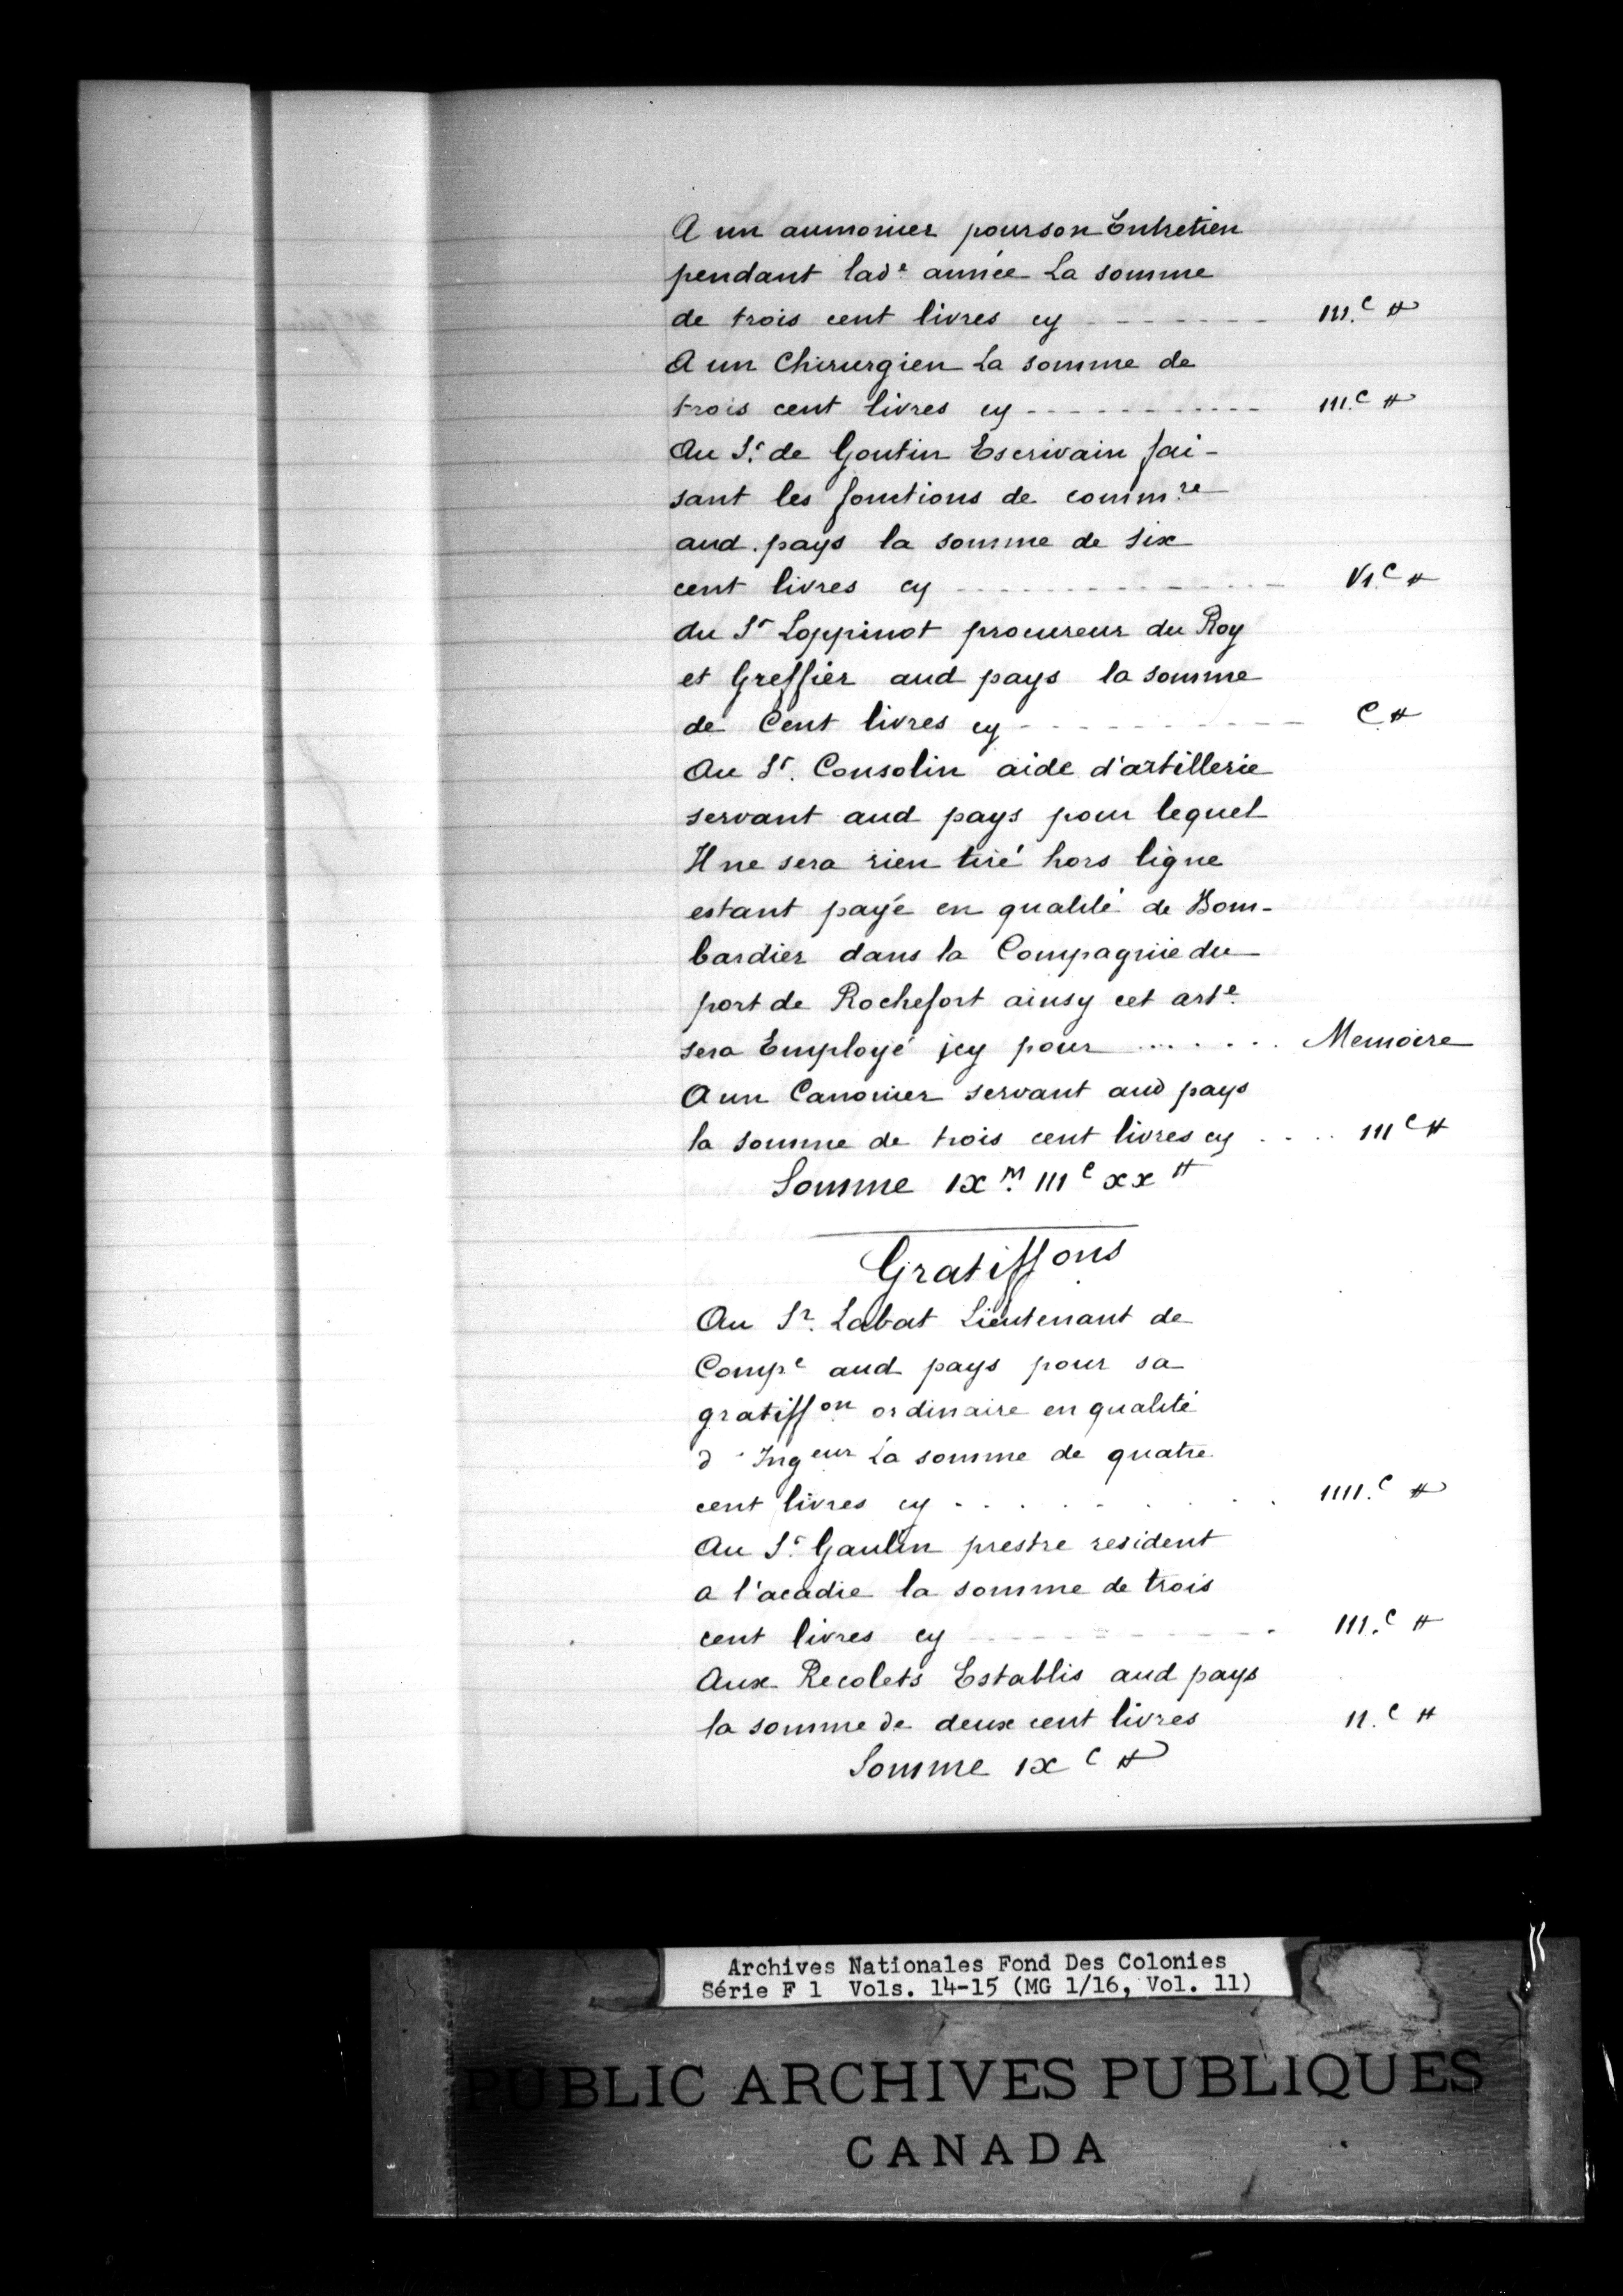 A un aumonier pour son Entretien
pendant lad.e année La somme
de trois cent livres cy - - - - - - - III.C ₶
A un Chirurgien La somme de
trois cent livres cy - - - - - - - - - - - III.C ₶
Au S.r de Goutin Escrivain fai-
sant les fonctions de comm.re
aud. pays la somme de six
cent livres cy - - - - - - - - - - - - - VI.C ₶
du Sr Loppinot procureur du Roy
et Greffier aud pays la somme
de Cent livres cy - - - - - - - - - - - C ₶
Au Sr. Consolin aide d'artillerie
servant aud pays pour lequel
Il ne sera rien tiré hors ligne
estant payé en qualité de Bom-
bardier dans la Compagnie du
port de Rochefort ainsy cet art.e
sera Employé jcy pour . . . . . . . Memoire
A un Canonier servant aud pays
la somme de trois cent livres cy . . . . III C ₶
Somme IX M. III C XX ₶
Gratiffons
Au Sr. Labat Lieutenant de
Comp.e aud pays pour sa
gratiffon ordinaire en qualité
d'Ingeur La somme de quatre
cent livres cy . . . . . . . . IIII.C ₶
Au S.r Gaulin prestre resident
a l'acadie la somme de trois
cent livres cy - - - - - - - - - - - III.C ₶
Aux Recolets Establis aud pays
la somme de deux cent livres II.C ₶
Somme IX C ₶
Archives Nationales Fond Des Colonies
Série F 1 Vols. 14-15 (MG 1/16, Vol. 11)
PUBLIC ARCHIVES PUBLIQUES
CANADA